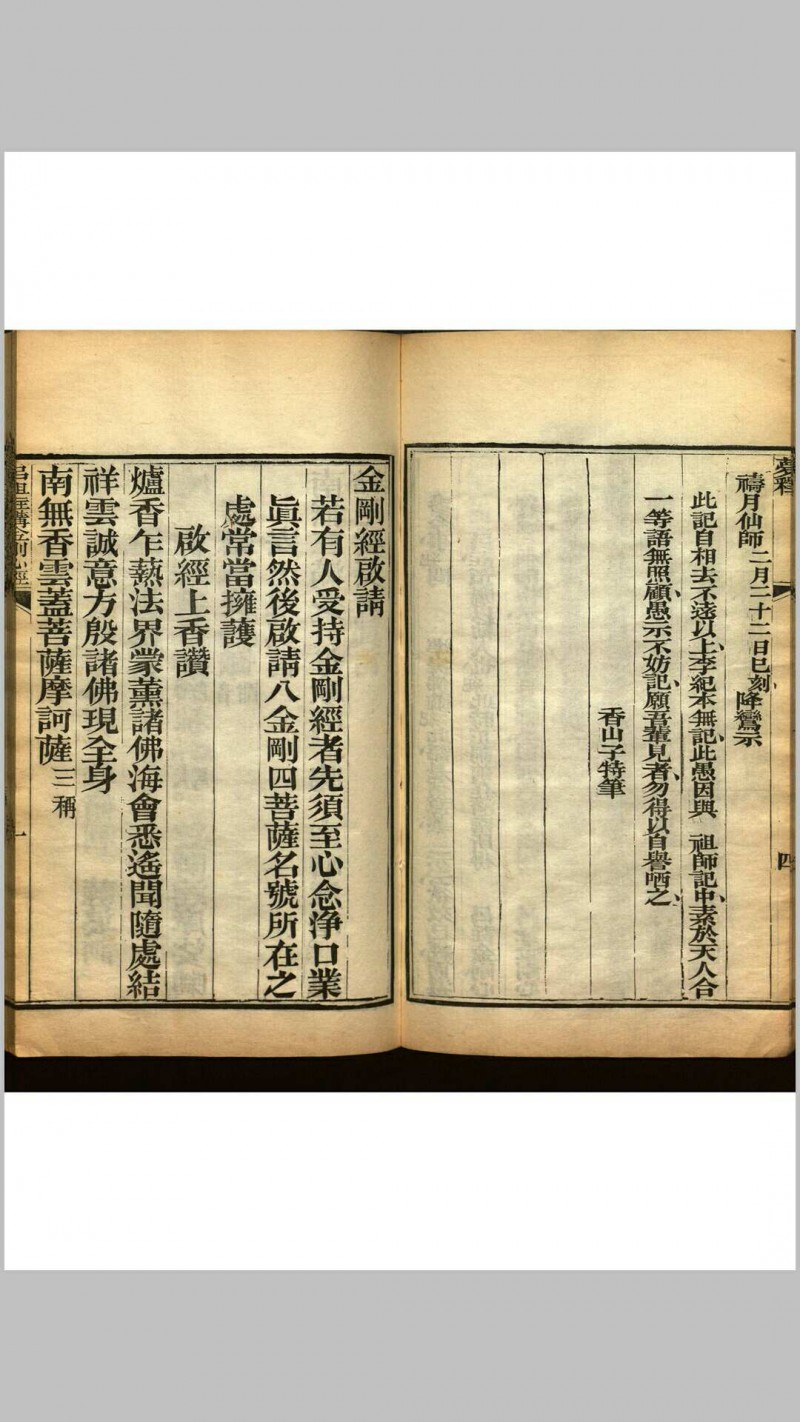 禱月仙師二月二十二日巳刻降鸞示
此記自相去不遠以上李紀本無記此愚因與 祖師記中素於天人合
一等語無照顧愚示不妨記願吾輩見者勿得以自譽哂之
香山子特筆
四
金剛經啟請
若有人受持金剛經者先須至心念淨口業
眞言然後啟請八金剛四菩薩名號所在之
處常當擁護
啟經上香讚
爐香乍爇法界蒙薰諸佛海會悉遙聞隨處結
祥雲誠意方殷諸佛現全身
南無香雲蓋菩薩摩訶薩 三稱
一